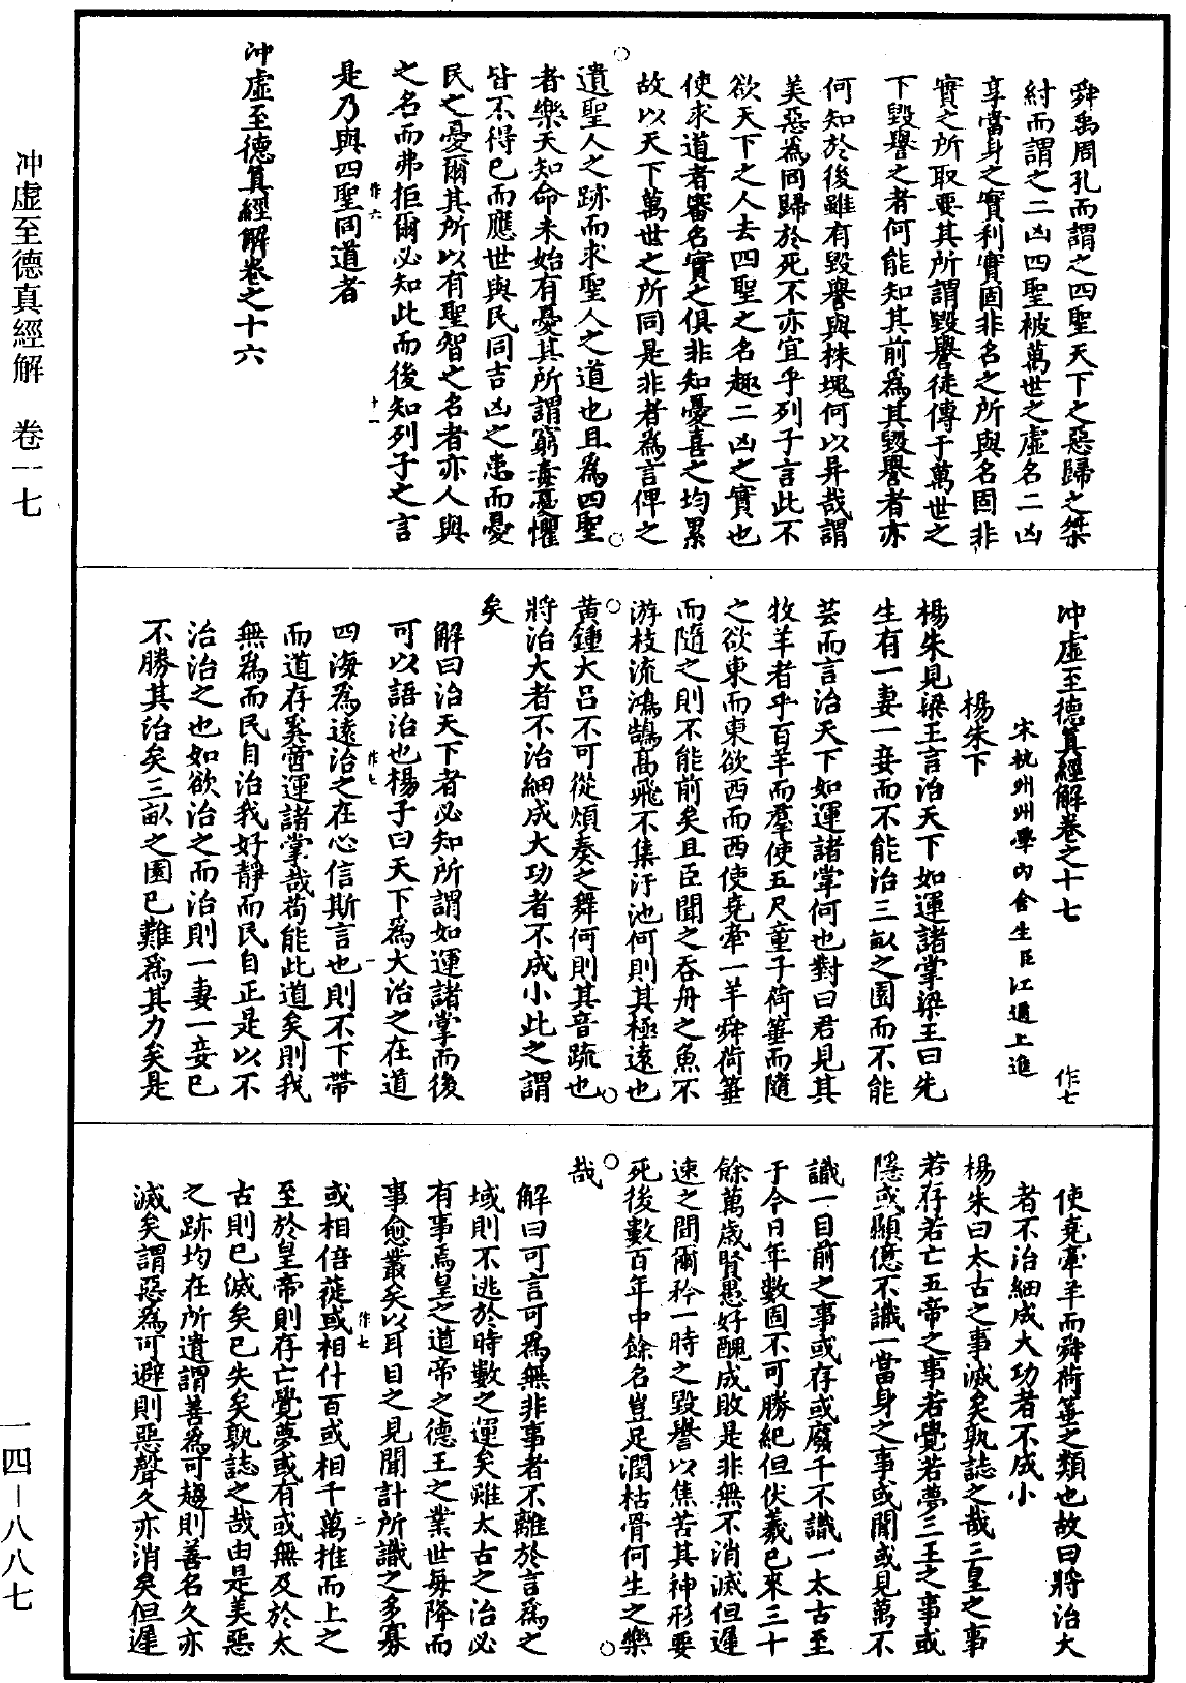 舜禹周孔而謂之四聖天下之惡歸之桀
紂而謂之二凶四聖被萬世之虛名二凶
享當身之實利實固非名之所與名固非
實之所取要其所謂毀譽徒傳于萬世之
下毀譽之者何能知其前爲其毀譽者亦
何知於後雖有毀譽與株塊何以异哉謂
美惡爲同歸於死不亦宜乎列子言此不
欲天下之人去四聖之名趣二凶之實也
使求道者審名實之俱非知憂喜之均累
故以天下萬世之所同是非者爲言俾之
遺聖人之跡而求聖人之道也且爲四聖
者樂天知命未始有憂其所謂窮毒憂懼
皆不得已而應世與民同吉凶之患而憂
民之憂爾其所以有聖智之名者亦人與
之名而弗拒爾必知此而後知列子之言
作六
十一
是乃與四聖同道者
冲虛至德真經解卷之十六
冲虛至德真經解卷之十七
作七
宋杭州州學內舍生臣江遹上進
楊朱下
楊朱見梁王言治天下如運諸掌梁王曰先
生有一妻一妾而不能治三畝之園而不能
芸而言治天下如運諸掌何也對曰君見其
牧羊者乎百羊而羣使五尺童子荷箠而隨
之欲東而東欲西而西使堯牽一羊舜荷箠
而隨之則不能前矣且臣聞之吞舟之魚不
游枝流鴻鵠高飛不集汙池何則其極遠也
黃鍾大呂不可從煩奏之舞何則其音疏也
將治大者不治細成大功者不成小此之謂
矣
解曰治天下者必知所謂如運諸掌而後
可以語治也楊子曰天下爲大治之在道
作七
一
四海爲遠治之在心信斯言也則不下帶
而道存奚啻運諸掌哉苟能此道矣則我
無爲而民自治我好靜而民自正是以不
治治之也如欲治之而治則一妻一妾已
不勝其治矣三畝之園已難爲其力矣是
使堯牽羊而舜荷箠之類也故曰將治大
者不治細成大功者不成小
楊朱曰太古之事滅矣孰誌之哉三皇之事
若存若亡五帝之事若覺若夢三王之事或
隱或顯億不識一當身之事或聞或見萬不
識一目前之事或存或廢千不識一太古至
于今日年數固不可勝紀但伏羲已來三十
餘萬歲賢愚好醜成敗是非無不消滅但遲
速之間爾矜一時之毀譽以焦苦其神形要
死後數百年中餘名豈足潤枯骨何生之樂
哉
解曰可言可爲無非事者不離於言爲之
域則不逃於時數之運矣雖太古之治必
有事焉皇之道帝之德王之業世每降而
事愈叢矣以耳目之見聞計所識之多寡
作七
二
或相倍蓰或相什百或相千萬推而上之
至於皇帝則存亡覺夢或有或無及於太
古則已滅矣已失矣孰誌之哉由是美惡
之跡均在所遺謂善為可趨則善名久亦
滅矣謂惡爲可避則惡聲久亦消矣但遲
冲虛至德真經解　卷一七
一四—八八七